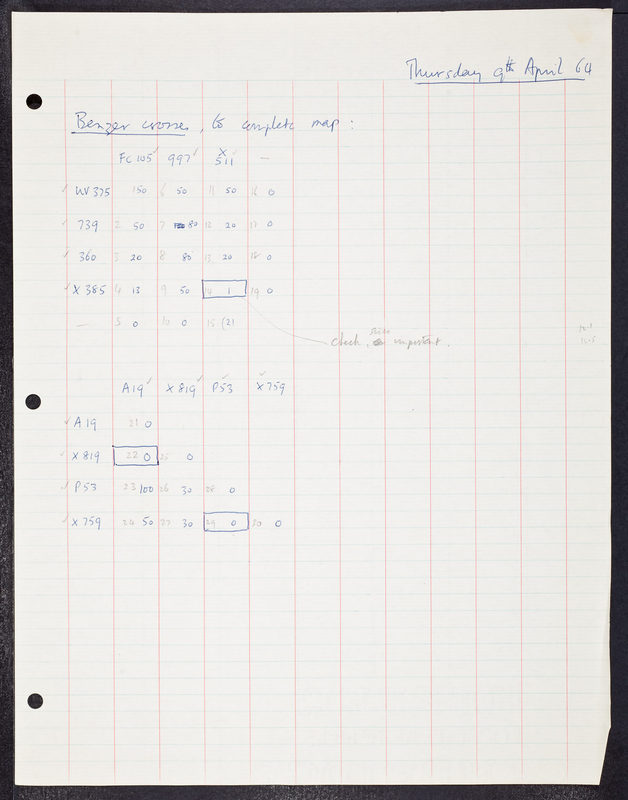 Thursday 9th April 64
Benzer crosses, to complete map:
FC 105 ✓ 997 ✓ X 511 ✓ —
✓ UV 375 150 6 50 11 50 16 0
✓ 739 2 50 7 80 12 20 17 0
✓ 360 3 20 8 80 13 20 18 0
✓ X 385 4 13 9 50 14 1 19 0
— 5 0 10 0 15 (21
check, since important.
A19 ✓ X 819 ✓ P53 ✓ X 759 ✓
✓ A 19 21 0
✓ X 819 22 0 25 0
✓ P 53 23 100 26 30 28 0
✓ X 759 24 50 27 30 29 0 30 0